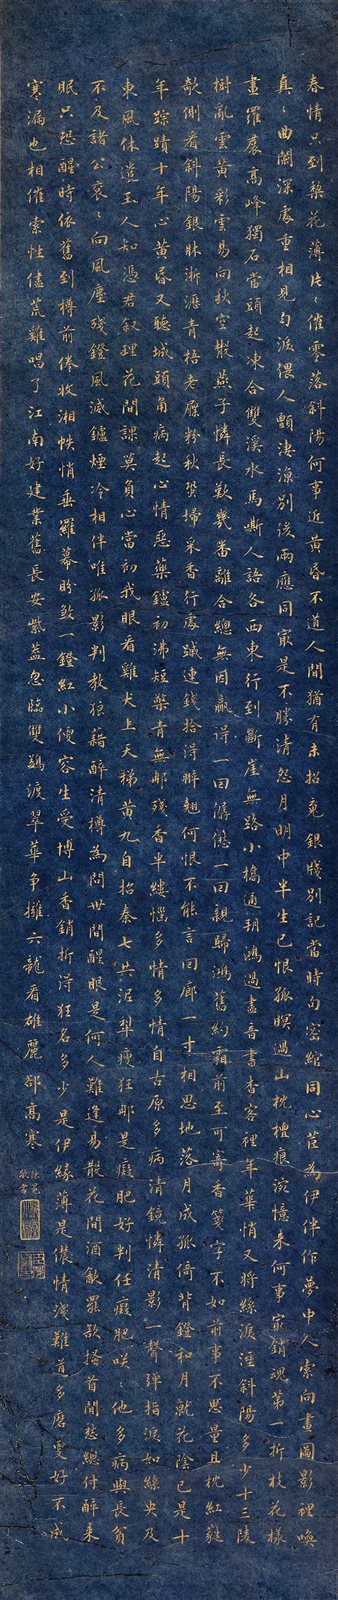 春情只到梨花薄片〻催零落斜陽何事近黃昏不道人間猶有未招魂銀牋別記當時句密綰同心苣為伊伴作夢中人索向畫圖影裡喚
真〻曲闌深處重相見勻淚偎人顫淒涼別後兩應同最是不勝清怨月明中半生已恨孤眠過山枕檀痕涴憶來何事最銷魂第一折枝花樣
畫羅裙高峰獨石當頭起凍合雙溪水馬嘶人語各西東行到斷崖無路小橋通朔鴻過盡音書杳客裡年華悄又將絲淚溼斜陽多少十三陵
樹亂雲黃彩雲易向秋空散燕子憐長歎幾番離合總無因贏得一回僝僽一回親歸鴻舊約霜前至可寄香箋字不如前事不思量且枕紅蕤
欹側看斜陽銀牀淅瀝青梧老屧粉秋蛩掃采香行處蹙連錢拾得翹何恨不能言回廊一寸相思地落月成孤倚背鐙和月就花陰已是十
年踪蹟十年心黃昏又聽城頭角病起心情惡藥鑪初沸短檠青無那殘香半縷惱多情多情自古原多病清鏡憐清影一聲彈指淚如絲央及
東風休遣玉人知憑君理花間課莫負心當初我眼看雞犬上天梯黃九自招秦七共泥犁瘦狂那是癡肥好判任癡肥咲〻他多病與長貧
不及諸公袞〻向風塵殘鐙風滅鑪煙冷相伴唯孤影判教狼藉醉清樽為問世間醒眼是何人難逢易散花間酒飲罷搔首閒愁總付醉來
眠只恐醒時依舊到樽前倦收湘帙悄垂羅幕盼煞一鐙紅小便容生受博山香銷折得狂名多少是伊緣薄是儂情淺難道多磨更好不成
寒漏也相催索性儘荒雞唱了江南好建業舊長安紫蓋忽臨雙鷁渡翠華爭擁六龍看雄麗卻高寒